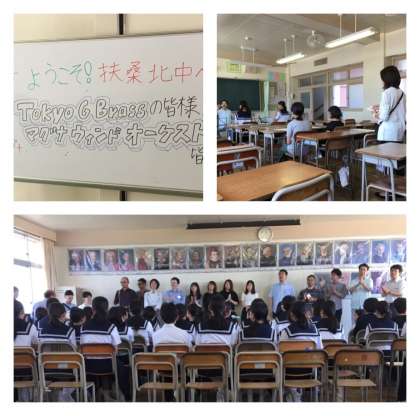 ようこそ! 扶桑北中へ
Tokyo 6 Brassの皆様
マグナ ウィンド オーケスト
皆